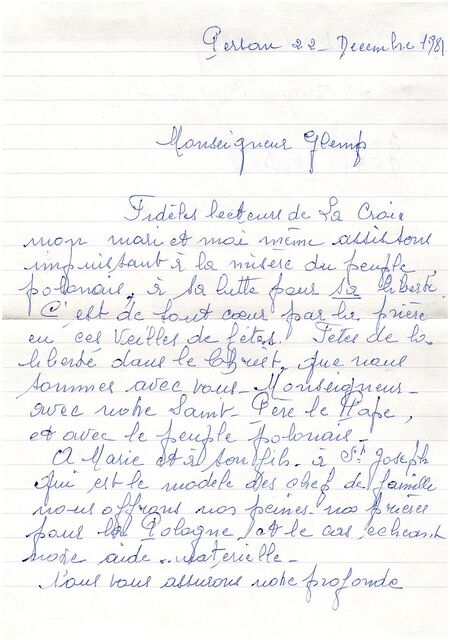 Persan 22 - Decembre 1981
Monseigneur Glemp
Fidèles lecteurs de La Croix
mon mari et moi même assistons
impuissant à la misère du peuple
polonais, à sa lutte pour sa liberté.
C'est de tout cœur par la prière
en ces veilles de fêtes. Fêtes de la
liberté dans le Christ, que nous
sommes avec vous - Monseigneur -
avec notre Saint Père le Pape,
et avec le peuple polonais -
A Marie et à son fils - à St Joseph
qui est le modèle des chef de famille
nous offrons nos peines - nos prières
pour la Pologne, et le cas echeant
notre aide - materielle -
Nous vous assurons notre profonde